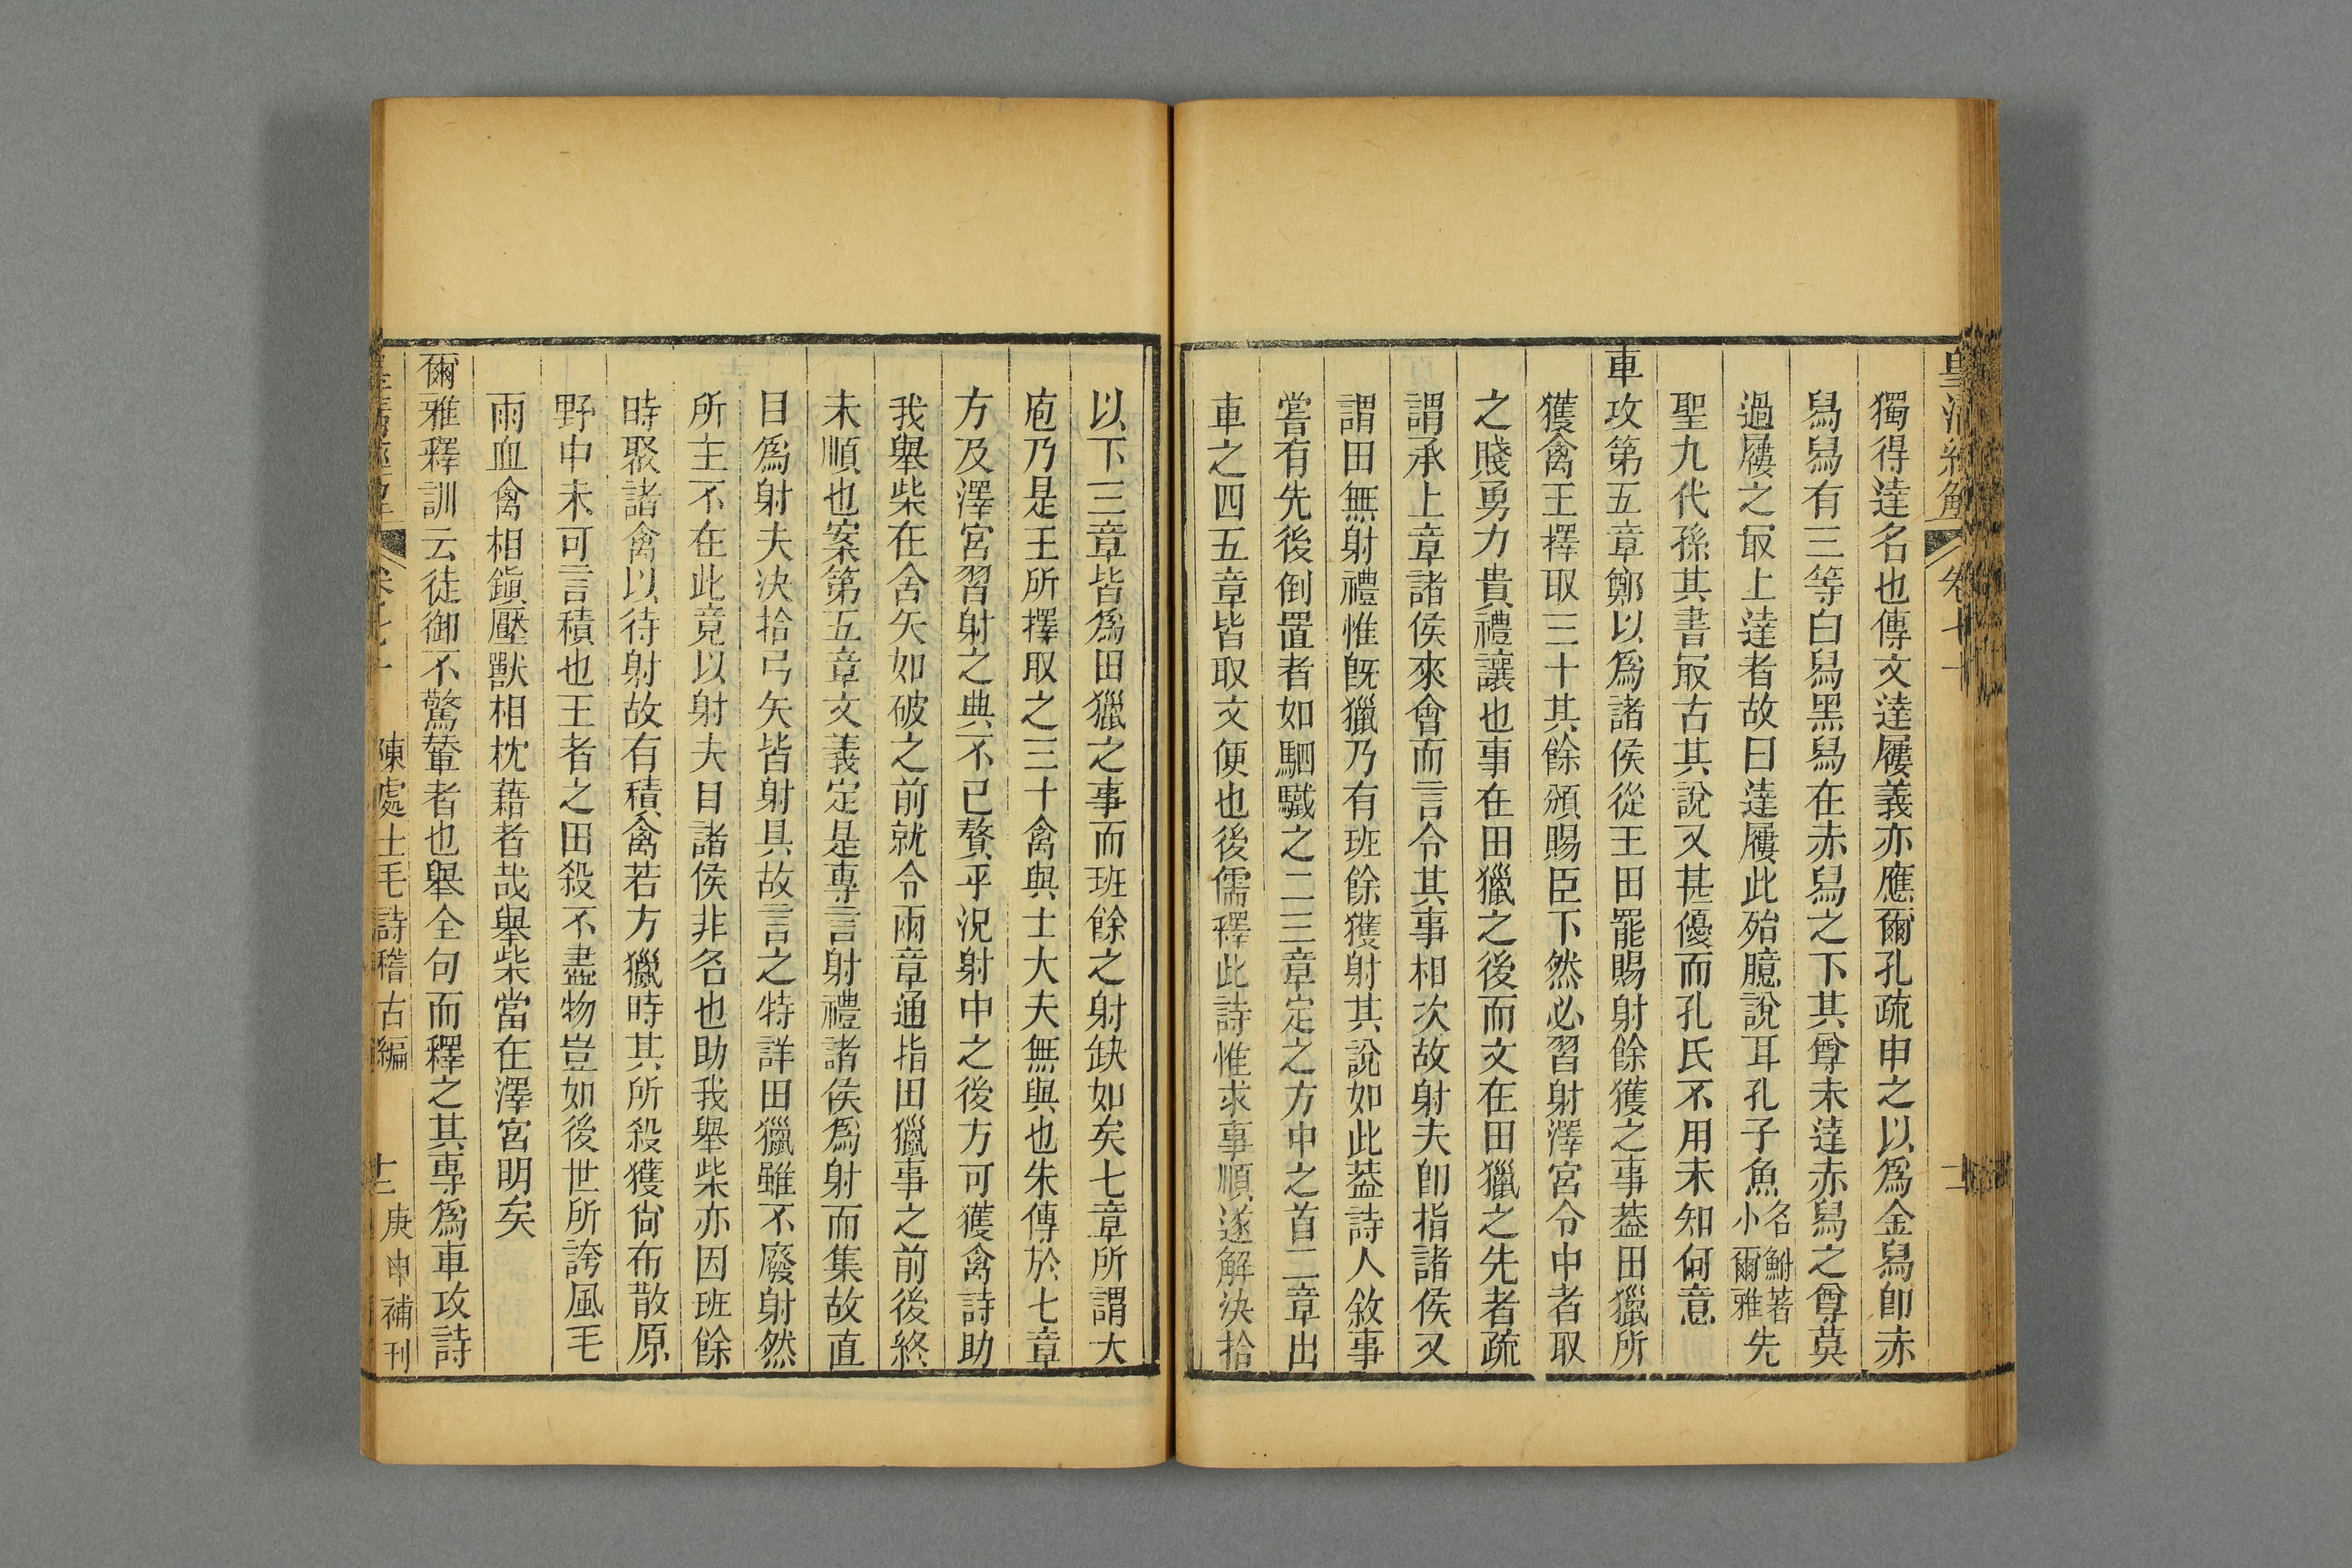 獨得達名也傳文達屨義亦應爾孔疏申之以爲金舄卽赤
舄舄有三等白舄黑舄在赤舄之下其尊未達赤舄之尊莫
過屨之冣上達者故曰達屨此殆臆說耳孔子魚名鮒著小爾雅先
聖九代孫其書冣古其說又甚優而孔氏不用未知何意
車攻第五章鄭以爲諸侯從王田罷賜射餘獲之事葢田獵所
獲禽王擇取三十其餘頒賜臣下然必習射澤宮令中者取
之賤勇力貴禮讓也事在田獵之後而文在田獵之先者疏
謂承上章諸侯來會而言令其事相次故射夫卽指諸侯又
謂田無射禮惟旣獵乃有班餘獲射其說如此葢詩人敘事
嘗有先後倒置者如駟驖之二三章定之方中之首二章出
車之四五章皆取文便也後儒釋此詩惟求事順遂解決拾
以下三章皆爲田獵之事而班餘之射缺如矣七章所謂大
庖乃是王所擇取之三十禽與士大夫無與也朱傳於七章
方及澤宮習射之典不已贅乎況射中之後方可獲禽詩助
我舉柴在舍矢如破之前就令兩章通指田獵事之前後終
未順也案第五章文義定是專言射禮諸侯爲射而集故直
目爲射夫決拾弓矢皆射具故言之特詳田獵雖不廢射然
所主不在此竟以射夫目諸侯非名也助我舉柴亦因班餘
時聚諸禽以待射故有積禽若方獵時其所殺獲尙布散原
野中未可言積也王者之田殺不盡物豈如後世所誇風毛
雨血禽相鎭壓獸相枕藉者哉舉柴當在澤宮明矣
爾雅釋訓云徒御不驚輦者也舉全句而釋之其專爲車攻詩
陳處士毛詩稽古編
庚申補刊